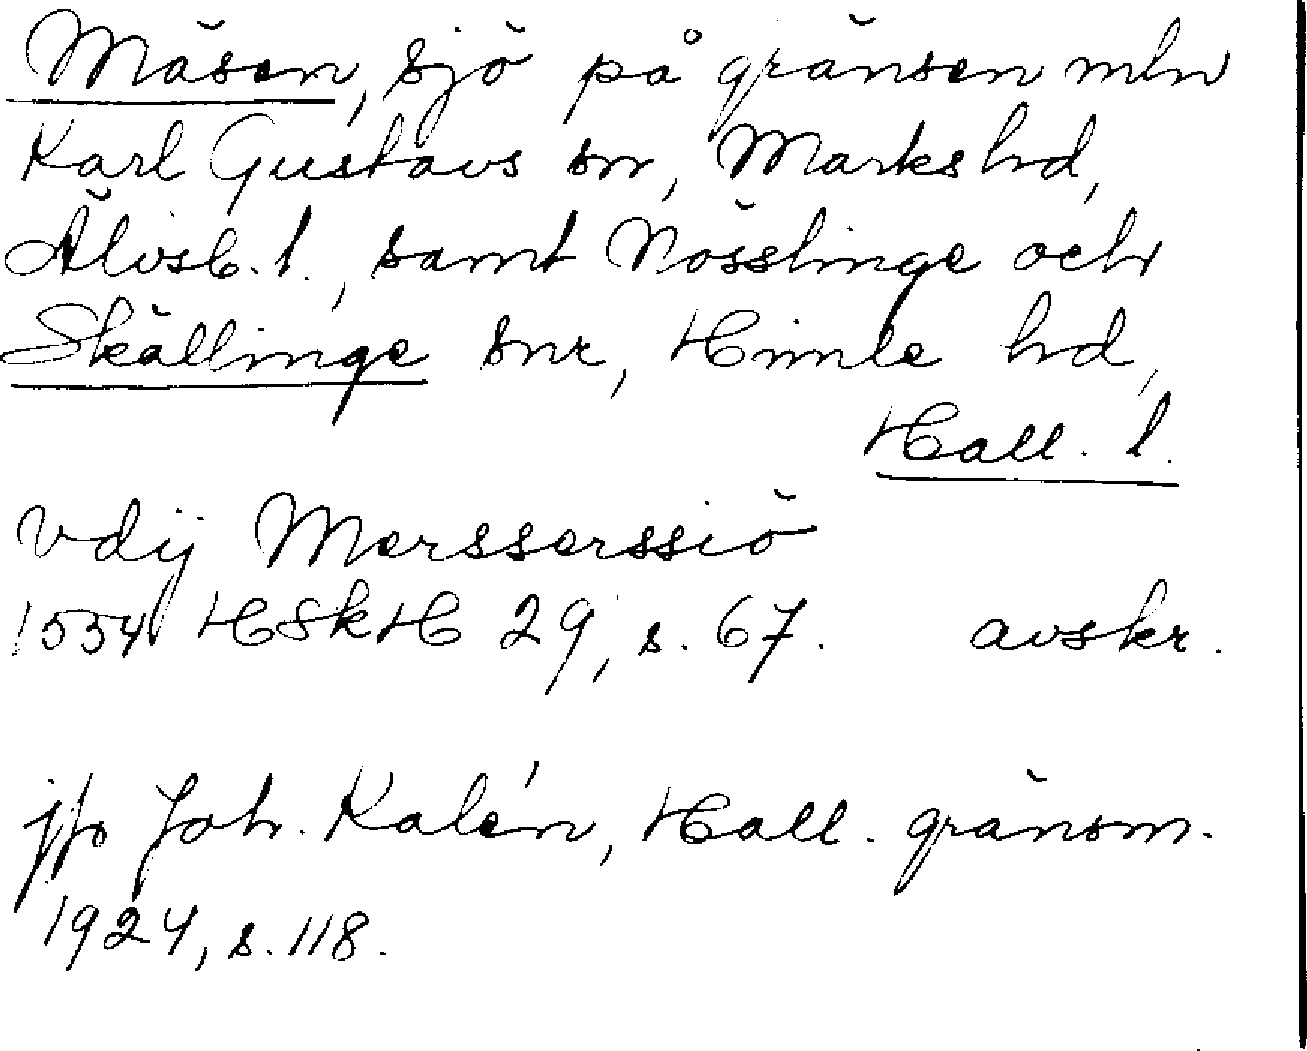 Mäsen, sjö på gränsen mln
Karl Gustavs sn, Marks hd,
Älvsb. l., samt Nösslinge och
Skällinge snr, Himle hd,
Hall. l.
vdij Mersserssiö
1554 HSkH 29, s. 67. avskr.
jfr Joh. Kalén, Hall. gränsm.
1924, s. 118.